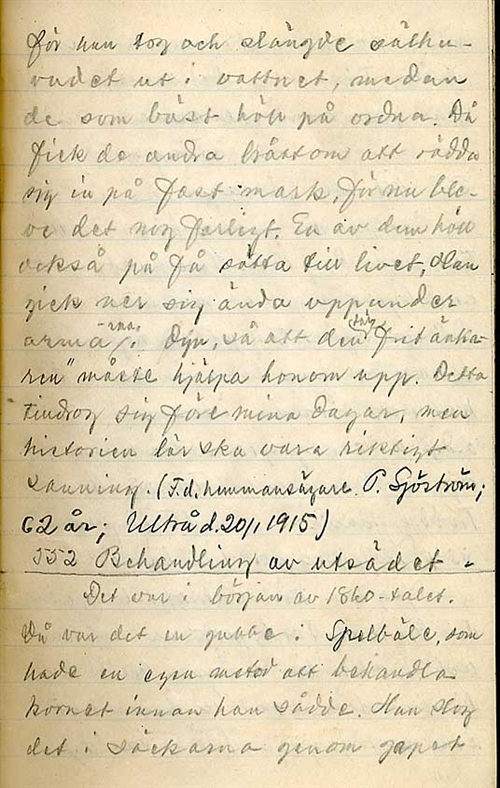 för han tog och slängde sälhu-
vudet ut i vattnet, medan
de som bäst höll på ordna. Då
fick de andra bråttom att rädda
sig in på fast mark, för nu ble-
ve det nog farligt. En av dem höll
också på få sätta till livet. Han
gick ner sig ända uppunder
armarna i dyn, så att den där fritänka-
ren" måste hjälpa honom upp. Detta
tilldrog sig före mina dagar, men
historien lär ska vara riktigt
sanning. (F.d. hemmansägare P. Sjöström;
62 år; Ultrå d. 20/1 1915)
552 Behandling av utsädet.
Det var i början av 1840-talet.
Då var det en gubbe i Spelbäle, som
hade en egen metod att behandla
kornet innan han sådde. Han slog
det i säckarna genom gapet